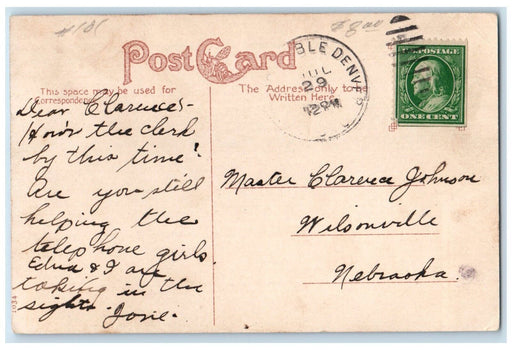 #101
$8.00
Post Card
This space may be used for
Correspondence
The Address only to be
Written Here
BLE DENVE
JUL
29
12
U.S. POSTAGE
ONE CENT
Dear Clarence-
How's the clerk
by this time?
Are you still
helping the
telephone girls.
Edna & I are
taking in the
sights. Josie.
Master Clarence Johnson
Wilsonville
Nebraska.
1034